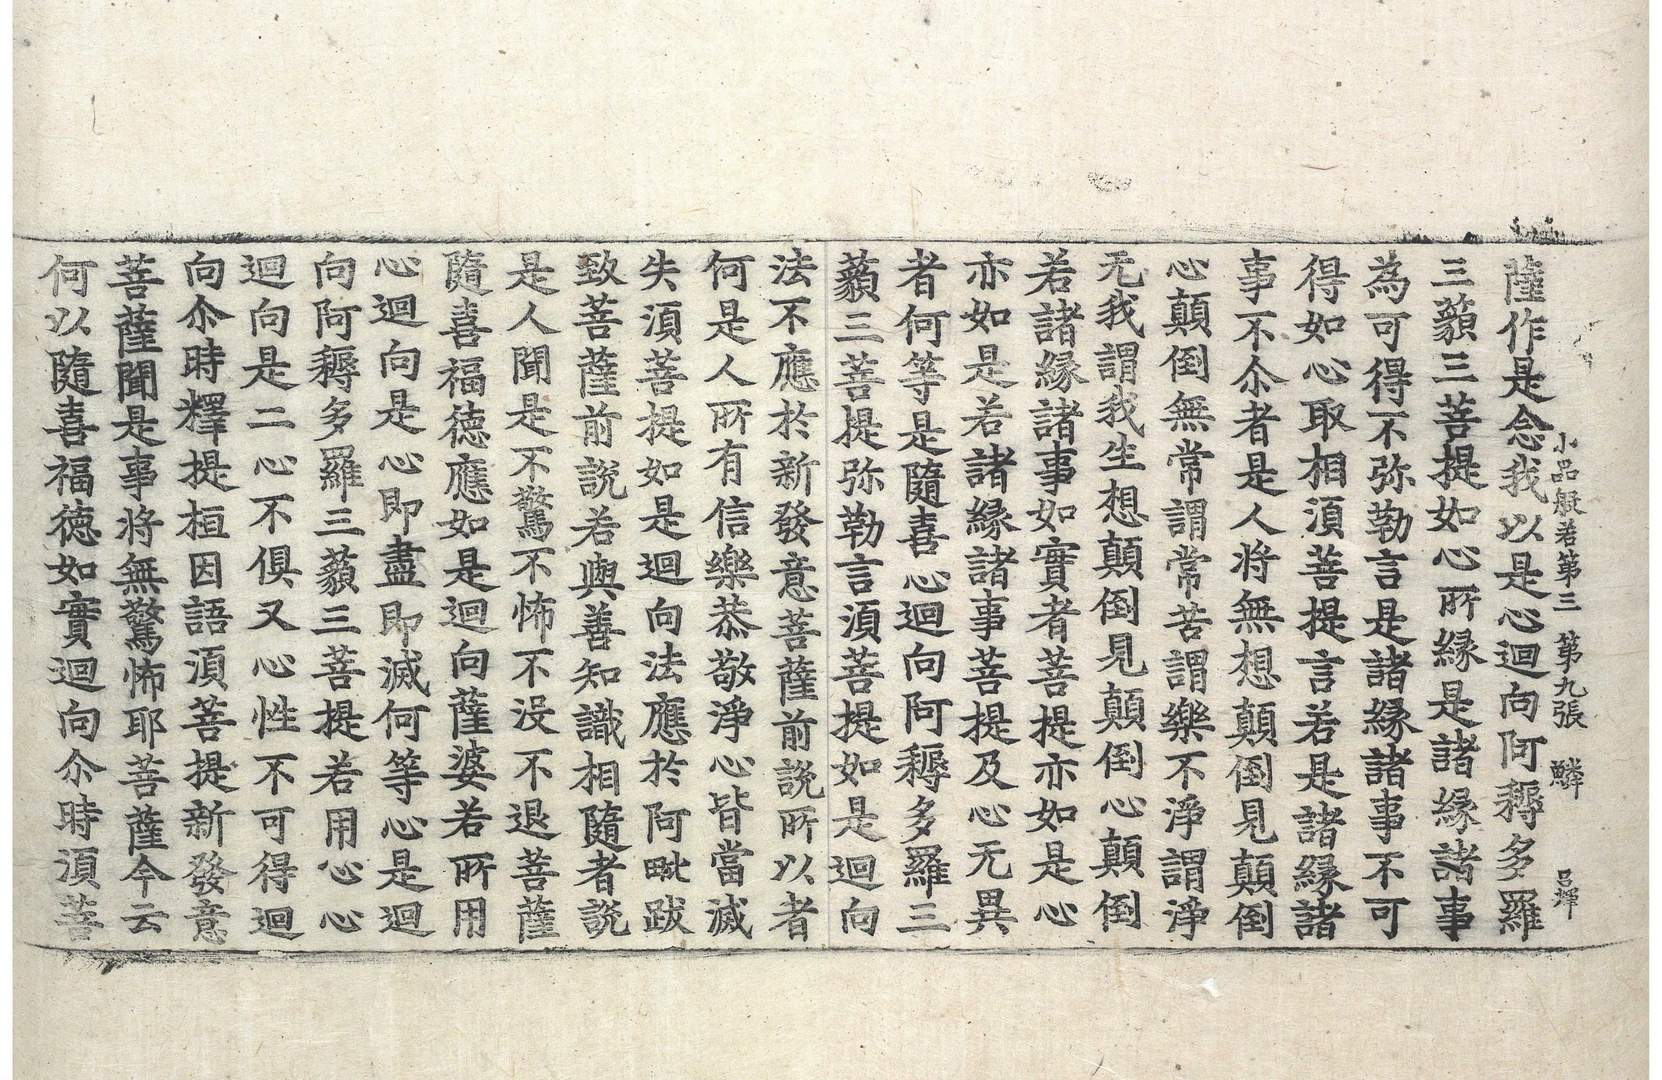 小品般若第三　第九張　鱗　呂揮
薩作是念我以是心迴向阿耨多羅
三藐三菩提如心所縁是諸縁諸事
為可得不弥勒言是諸縁諸事不可
得如心取相湏菩提言若是諸縁諸
事不尒者是人将無想顛倒見顛倒
心顛倒無常謂常苦謂樂不淨謂淨
无我謂我生想顛倒見顛倒心顛倒
若諸縁諸事如實者菩提亦如是心
亦如是若諸縁諸事菩提及心无異
者何等是隨喜心迴向阿耨多羅三
藐三菩提弥勒言湏菩提如是迴向
法不應於新發意菩薩前說所以者
何是人所有信樂恭敬淨心皆當滅
失湏菩提如是迴向法應於阿毗跋
致菩薩前說若與善知識相隨者說
是人聞是不驚不怖不没不退菩薩
隨喜福徳應如是迴向薩婆若所用
心迴向是心即盡即滅何等心是迴
向阿耨多羅三藐三菩提若用心心
迴向是二心不俱又心性不可得迴
向尒時釋提桓因語湏菩提新發意
菩薩聞是事将無驚怖耶菩薩今云
何以隨喜福徳如實迴向尒時湏菩